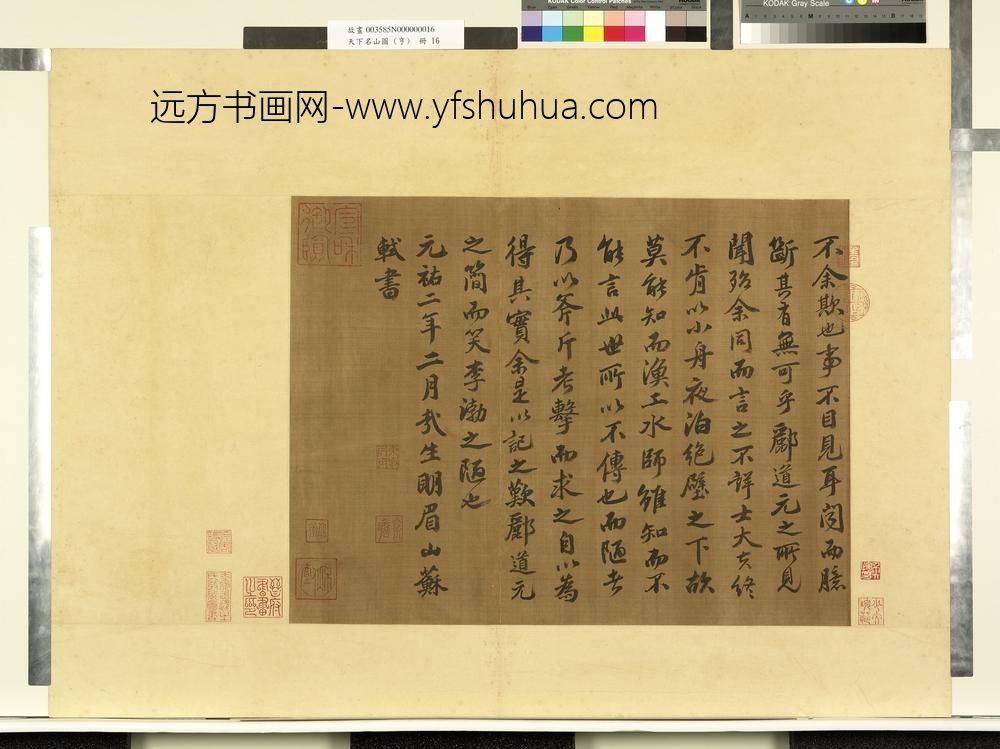 故畫 003585N000000016
天下名山圖（亨） 冊 16
KODAK Color Control Patches
KODAK Gray Scale
远方书画网-www.yfshuhua.com
不余欺也事不目見耳聞而臆
斷其有無可乎酈道元之所見
聞殆余同而言之不詳士大夫終
不肯以小舟夜泊絶壁之下故
莫能知而漁工水師雖知而不
能言此世所以不傳也而陋者
乃以斧斤考擊而求之自以為
得其實余是以記之歎酈道元
之簡而笑李渤之陋也
元祐二年二月哉生明眉山蘇
軾書